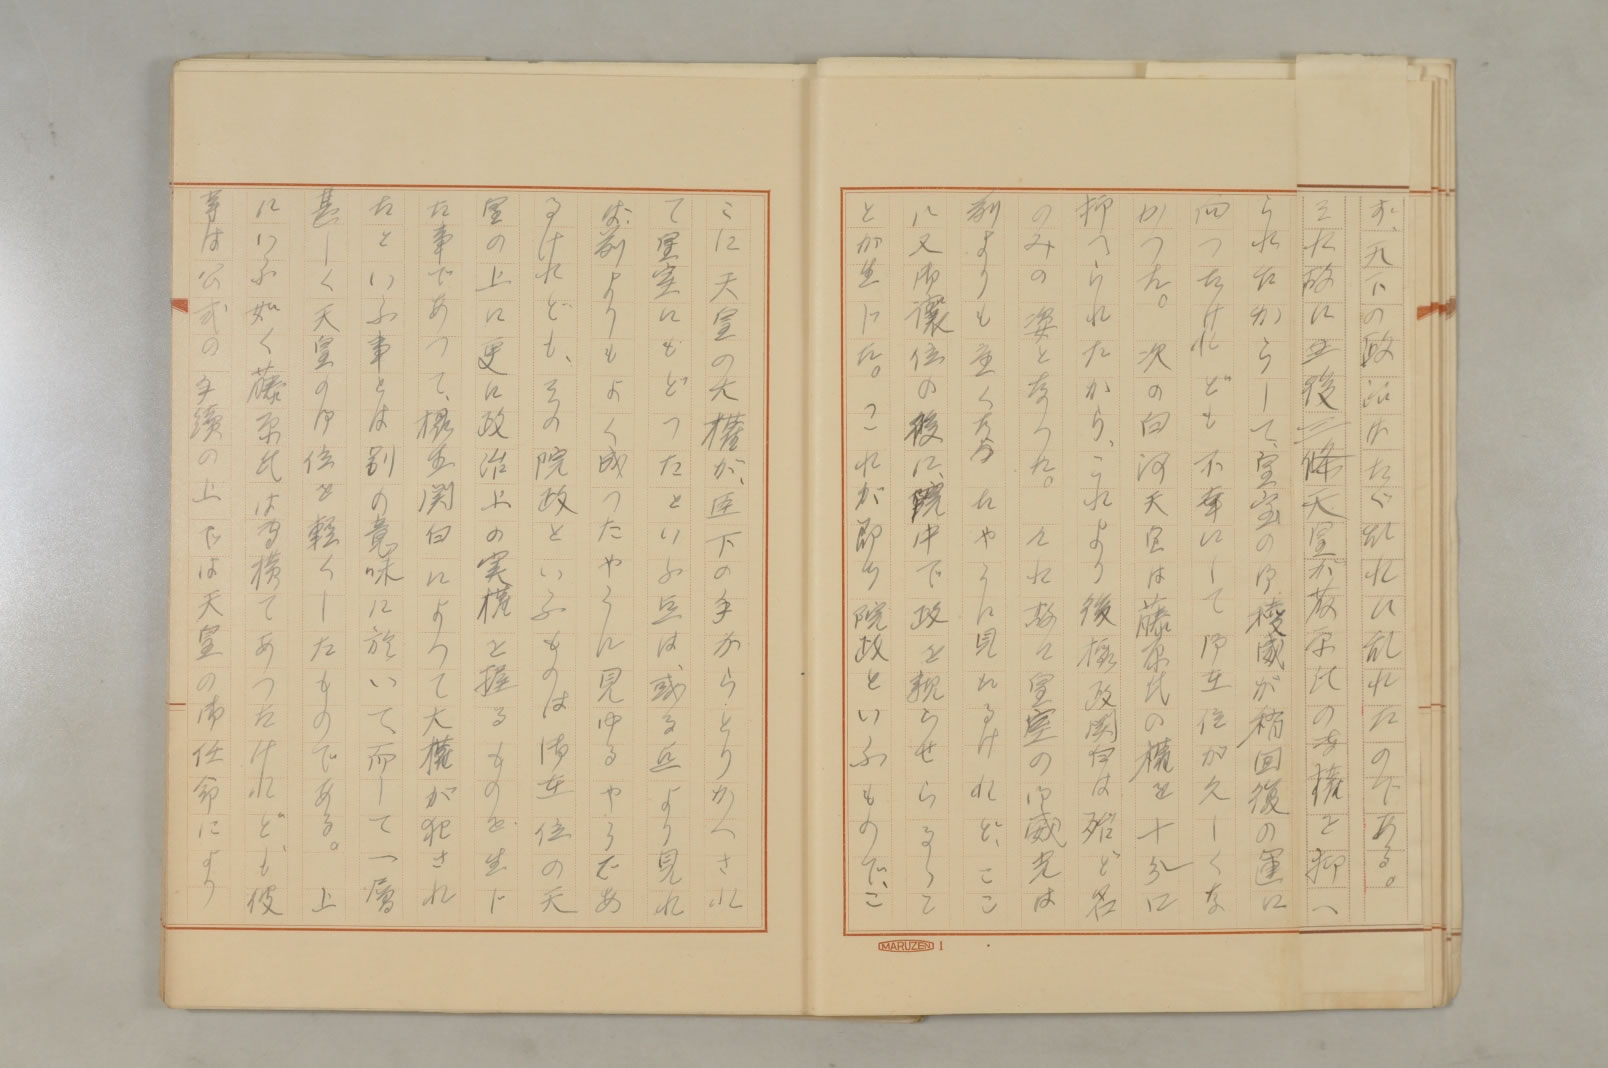 ず、天下の政治はたゞ乱れに乱れたのである。
それ故に後三条天皇が藤原氏の権を抑へ
られたからして、皇室の御稜威が稍回復の運に
向つたけれども不幸にして御在位が久しくな
かつた。次の白河天皇は藤原氏の権を十分に
抑へられたから、これより後摂政関白は殆ど名
のみの姿となつた。それ故に皇室の御威光は
前よりも重くなつたやうに見れるけれど、ここ
に又御譲位の後に、院中で政を親らせらるるこ
とが生じた。これが即ち院政といふもので、こ
こに天皇の大権が、臣下の手からとりかへされ
て皇室にもどつたといふ点は、或る点より見れ
ば、前よりもよく成つたやうに見ゆるやうであ
るけれども、その院政といふものは御在位の天
皇の上に更に政治上の実権を握るものを生じ
た事であつて、摂政関白によつて大権が犯され
たといふ事とは別の意味に於いて、而して一層
甚しく天皇の御位を軽くしたものである。上
にいふ如く藤原氏は専横てあつたけれども彼
等は公式の手続の上では天皇の御任命により
MARUZEN 1